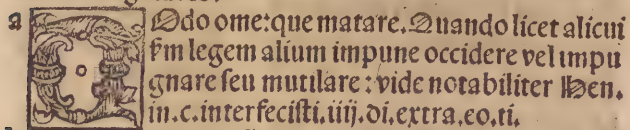 a QUodo ome: que matare. Quando licet alicui
ẜm legem alium impune occidere vel impu
gnare seu mutilare: vide notabiliter Hen.
in. c. interfecisti. iiij. di. extra. eo. ti.